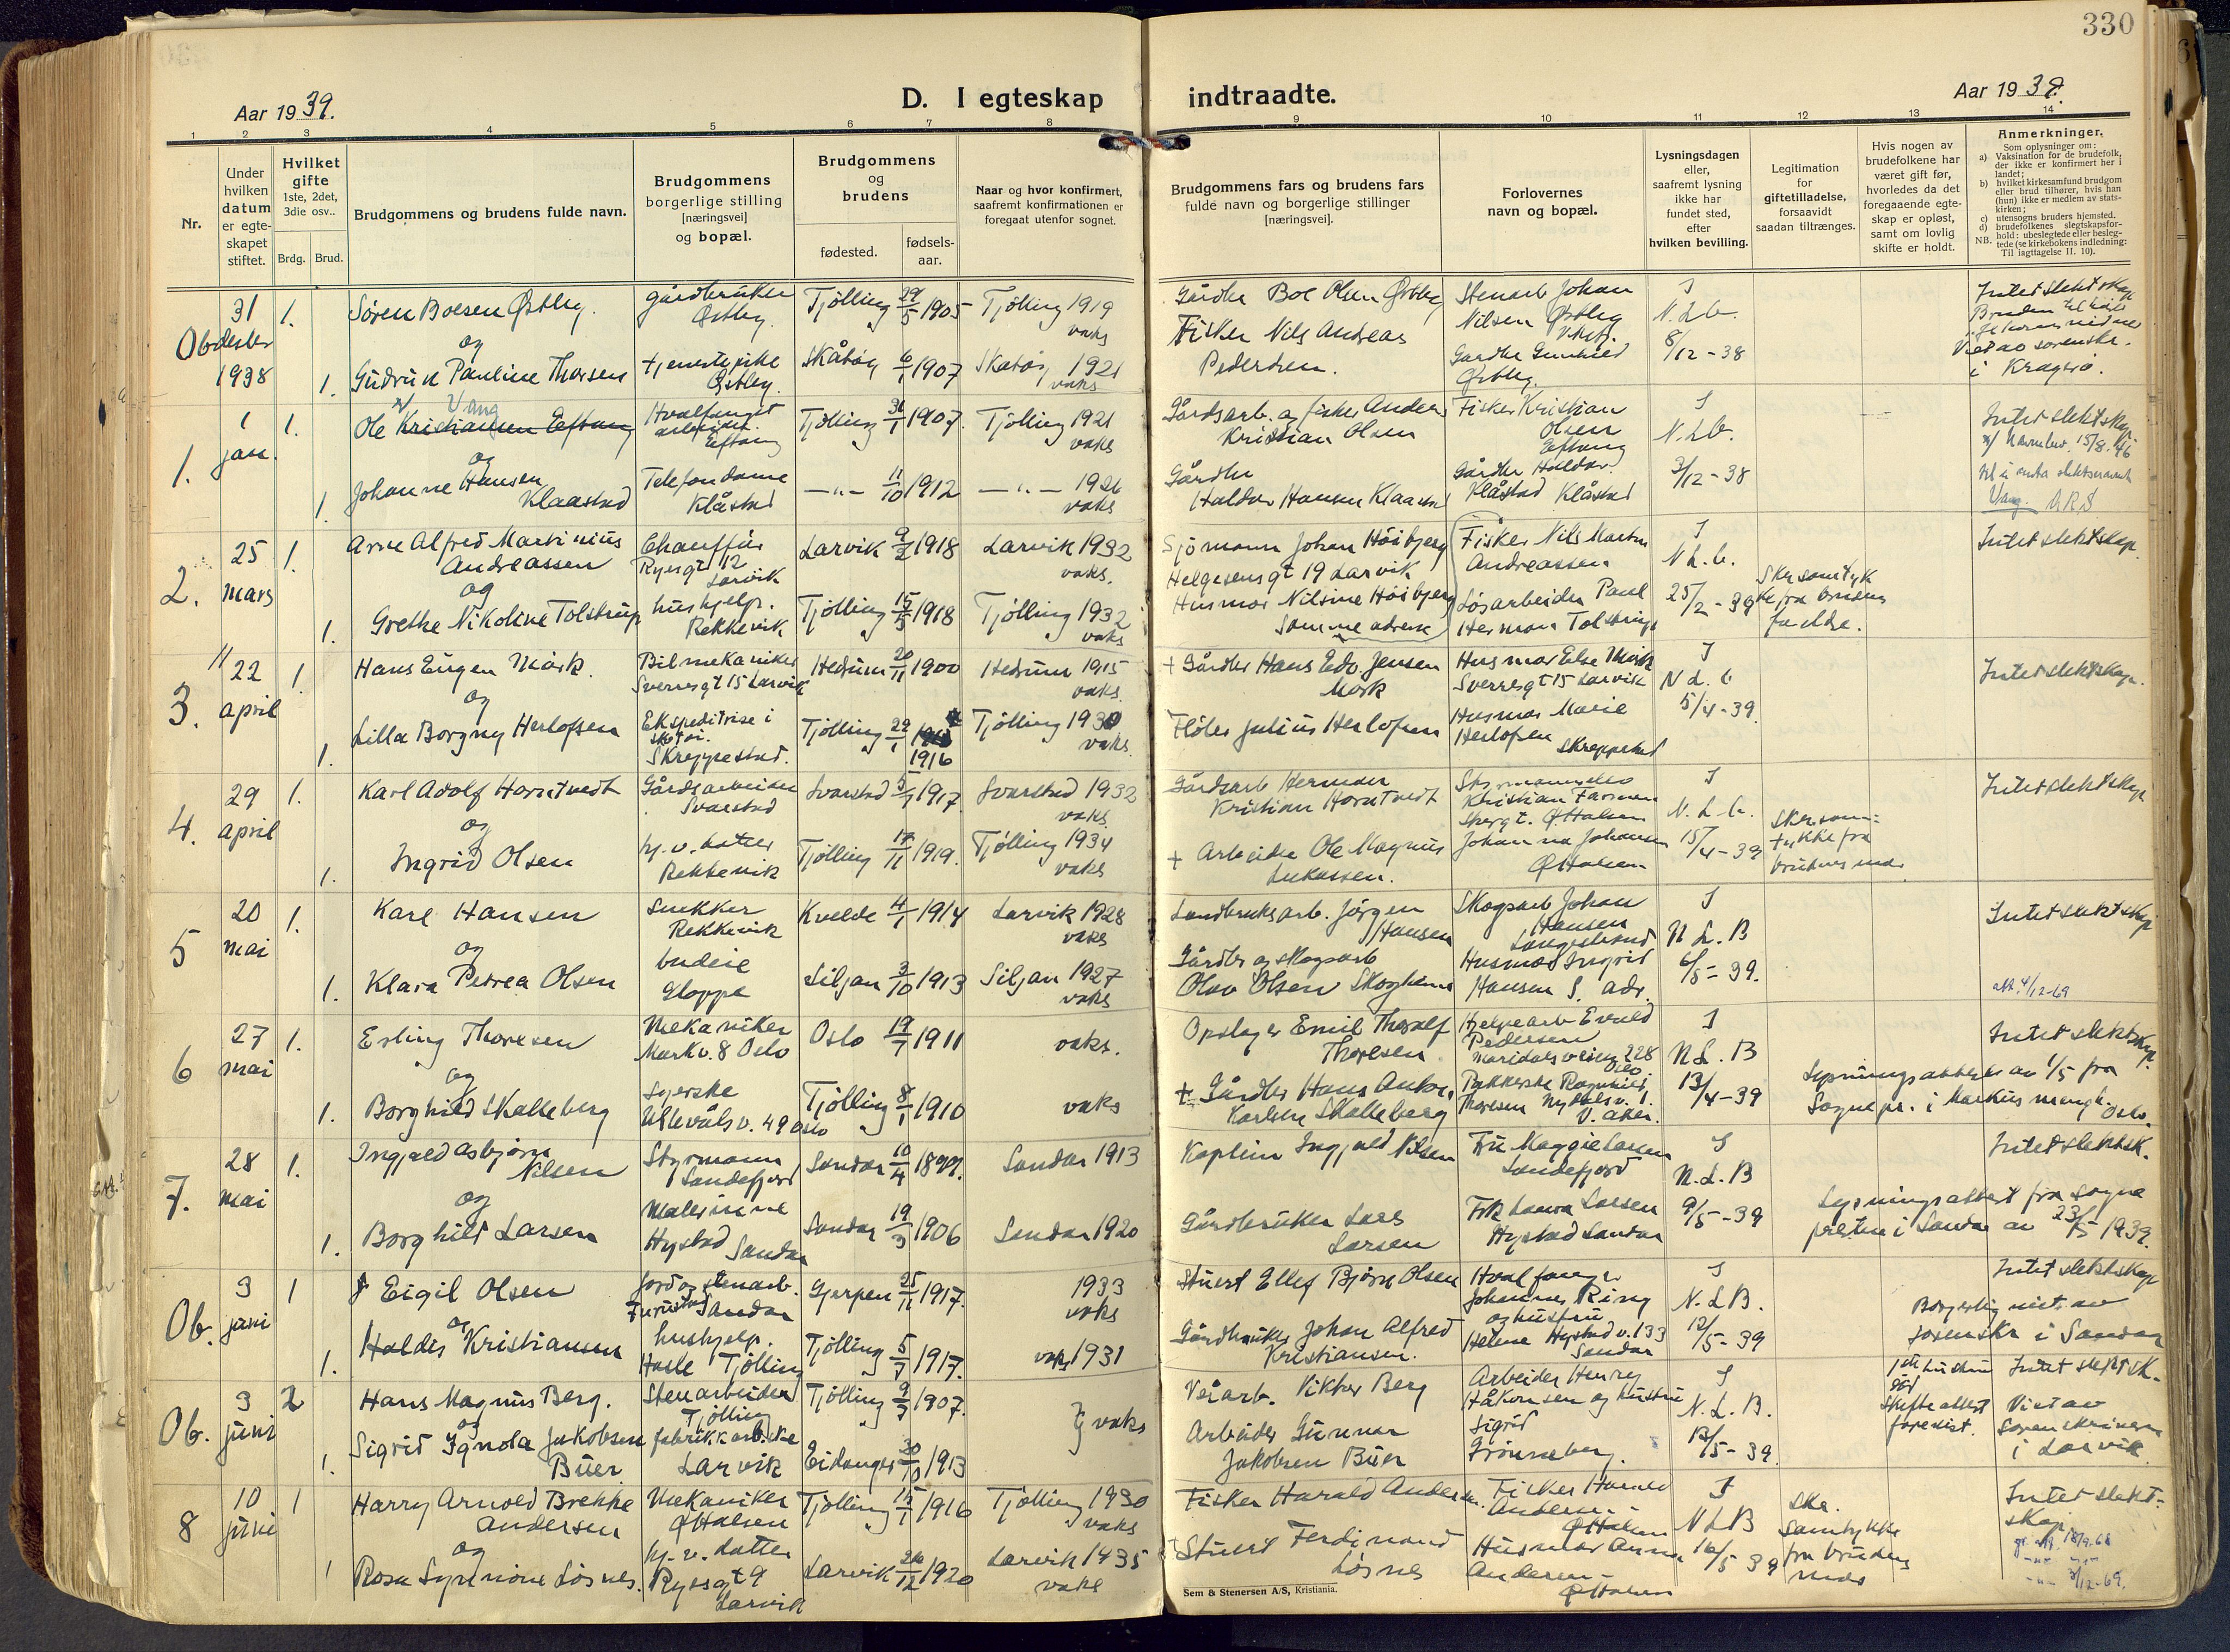 330
Aar 1939.
D. I egteskap
indtraadte.
Aar 1939.
1 2 3 4 5 6 7 8
9 10 11 12 13 14
Nr.
Under hvilken datum er egteskapet stiftet.
Hvilket gifte 1ste, 2det, 3die osv..
Brdg. Brud.
Brudgommens og brudens fulde navn.
Brudgommens borgerlige stilling [næringsvei] og bopæl.
Brudgommens og brudens
fødested.
fødsels-aar.
Naar og hvor konfirmert, saafremt konfirmationen er foregaat utenfor sognet.
Brudgommens fars og brudens fars fulde navn og borgerlige stillinger [næringsvei].
Forlovernes navn og bopæl.
Lysningsdagen eller, saafremt lysning ikke har fundet sted, efter hvilken bevilling.
Legitimation for giftetilladelse, forsaavidt saadan tiltrænges.
Hvis nogen av brudefolkene har været gift før, hvorledes da det foregaaende egteskap er opløst, samt om lovlig skifte er holdt.
Anmerkninger.
Som oplysninger om:
a) Vaksination for de brudefolk, der ikke er konfirmert her i landet;
b) hvilket kirkesamfund brudgom eller brud tilhører, hvis han (hun) ikke er medlem av statskirken;
c) utensogns bruders hjemsted.
d) brudefolkenes slegtskapsforhold: ubeslegtede eller beslegtede (se kirkebokens indledning:
NB. Til iagttagelse II. 10).
31 1. Søren Boesen Østby. gårdbruker Østby. Tjølling 29/5 1905 Tjølling 1919 vaks
Gårdbr Boe Olsen Østby Stenarb Johan Nilsen Østby
1938 og
1. Gudrun Pauline Thorsen tjenestepike Østby. Skåtøy 6/1 1907 Skåtøy 1921 vaks
Fisker Nils Andreas Pedersen. Gårdbr Gunhild Østby. N.L.b. 8/12-38
Intet slektskap
i Kragerø.
1. 1 jan. 1. Ole Kristiansen Eftang Vang Hvalfanger arbeider Eftang Tjølling 31/1 1907. Tjølling 1921 vaks
Gårdsarb. og fisker Anders Kristian Olsen Fisker Kristian Olsen Eftang N.L.b. 3/12-38 Intet slektskap
og
1. Johanne Hansen Klaastad Telefondame Klåstad 11/10 1912 1926 vaks
Gårdbr Haldor Hansen Klaastad Gårdbr Haldor Klåstad Klåstad
Vang
2. 25 mars 1. Arne Alfred Martinius Andreassen Chauffør Ryesgt 12 Larvik Larvik 9/2 1918 Larvik 1932 vaks.
Sjømann Johan Höibjerg Helgesensgt 19 Larvik Fisker Nils Martin Andreassen N.L.b. 25/2-39 Intet slektskap
og
1. Grethe Nikoline Tolstrup hushjelp. Rekkevik Tjølling 15/5 1918 Tjølling 1932 vaks
Husmor Nilsine Höibjerg Samme adresse Løsarbeider Paul Herman Tolstrup
3. 22 april 1. Hans Eugen Mørk. Bilmekaniker Sverresgt 15 Larvik Hedrum 20/11 1900 Hedrum 1915 vaks
+ Gårdbr Hans Edv. Jensen Mørk Husmor Else Mørk Sverresgt 15 Larvik N.L.b 5/4-39. Intet slektskap.
og
1. Lilla Borgny Herlofsen Ekspeditrise i skotøi. Skreppestad. Tjølling 22/1 1916 Tjølling 1930 vaks.
Fløter Julius Herlofsen Husmor Marie Herlofsen Skreppestad
4. 29 april 1. Karl Adolf Horntvedt Gårdsarbeider Svarstad Svarstad 1917. Svarstad 1932 vaks
Gårdsarb Herman Kristian Horntvedt Kristian Farmen Ø Halsen N.L.b. 15/4-39 Intet slektskap
og
1. Ingrid Olsen hj.v. datter Rekkevik Tjølling 17/11 1919. Tjølling 1934 vaks
+ Arbeider Ole Magnus Lukassen. Johanna Johansen Ø Halsen Skr. samtykke fra brudens mor
5 20 mai 1. Karl Hansen Snekker Rekkevik Kvelde 4/1 1914 Larvik 1928 vaks
Landbruksarb. Jörgen Hansen Skogsarb Johan Hansen Langestrand N.L.B 6/5-39. Intet slektskap
og
1. Klara Petrea Olsen budeie Gloppe Siljan 3/10 1913 Siljan 1927 vaks
Gårdbr og skogsarb Olav Olsen Skogheim Husmor Ingrid Hansen S. adr. att. 4/12-69
6 27 mai 1. Erling Thoresen Mekaniker Markv. 8 Oslo Oslo 19/7 1911 vaks.
Opslager Emil Thoralf Thoresen Hjelpearb Evald Pedersen Maridalsveien 228 Oslo N.L.B 13/4-39 Intet slektskap.
og
1. Borghild Skalleberg Syerske Ullevålsv. 49 Oslo Tjølling 8/1 1910 vaks
+ Gårdbr Hans Anton Karlsen Skalleberg Thoresen Nydalsv. 1. V. Aker. Lysningsattest av 1/5 fra Sognepr. i Markus mengh. Oslo.
7. 28 mai 1. Ingjald Asbjørn Nilsen Styrmann Sandefjord Sandar 10/4 1899. Sandar 1913
Kaptein Ingjald Nilsen Fru Maggie Larsen Sandefjord N.L.B 9/5-39 Intet slektsk.
og
1. Borghild Larsen Malerinne Hystad Sandar Sandar 19/3 1906 Sandar 1920
Gårdbruker Lars Larsen Frk Laura Larsen Hystad Sandar Lysningsattest fra sogne presten i Sandar av 23/5 1939.
Ob. 3 juni 1 Eigil Olsen Jord og stenarb. Furustad Sandar Gjerpen 25/11 1917. 1933 vaks
Stuert Ellef Bjørn Olsen Hvalfanger Johannes Ring og hustru N.L.B. 12/5-39 Intet slektskap
og
1. Haldis Kristiansen hushjelp. Hasle Tjølling Tjølling 5/7 1917. vaks 1931
Gårdbruker Johan Alfred Kristiansen. Helene Hystadv. 133 Sandar Borgerlig viet av sorenskr i Sandar
Ob. 3 juni 2 Hans Magnus Berg. Stenarbeider Tjølling Tjølling 9/7 1907. vaks
Veiarb. Viktor Berg Arbeider Henry Håkonsen og hustru Sigrid Grønneberg. N.L.B. 13/5-39. 1ste hustru død Skifteattest forevist. Intet slektsk.
og
1. Sigrid Ignola Jakobsen Büer fabrikkarb.ske Larvik Eidanger 30/10 1913
Arbeider Gunnar Jakobsen Büer Viet av Sorenskriveren i Larvik
8 10 juni 1 Harry Arnold Brekke Andersen Mekaniker Ø Halsen Tjølling 15/1 1916 Tjølling 1930 vaks
Fisker Harald Andersen. Fisker Harald Andersen Ø Halsen N.L.B 16/5 39 Skr. samtykke fra brudens mor Intet slektskap
og
1 Rosa Synnöve Lösnes. hj.v. datter Ryesgt 9 Larvik Larvik 26/12 1920 Larvik 1935 vaks
Stuert Ferdinand Lösnes Husmor Anna Andersen Ø Halsen
Sem & Stenersen A/S, Kristiania.